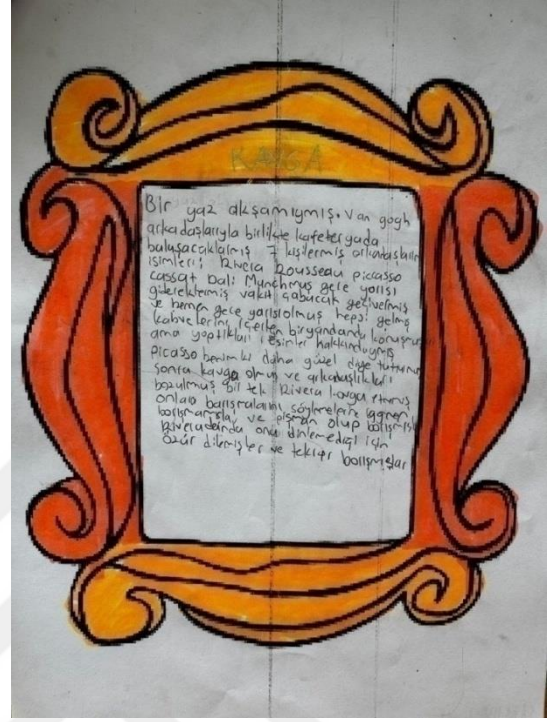 KAVGA
Bir yaz akşamıymış. Van gogh
arkadaşlarıyla birlikte kafeteryada
buluşacaklarmış 7 kişilermiş arkadaşların
isimleri; Rivera Rousseau picasso
cassat Dali Munchmuş gece yarısı
gideceklermiş vakit çabucak geçivermiş
ve hemen gece yarısı olmuş hepsi gelmiş
kahvelerini içerken bir yandanda
ama yaptıkları resimler hakkındaymış
picasso benimki daha güzel diye
sonra kavga olmuş ve arkadaşlıkları
bozulmuş bir tek Rivera kavga etmemiş
onlara barışmalarını söylemesine
barışmamışlar ve pişman olup barışmış
Riveradanda onu dinlemediği için
özür dilemişler ve tekrar barışmışlar